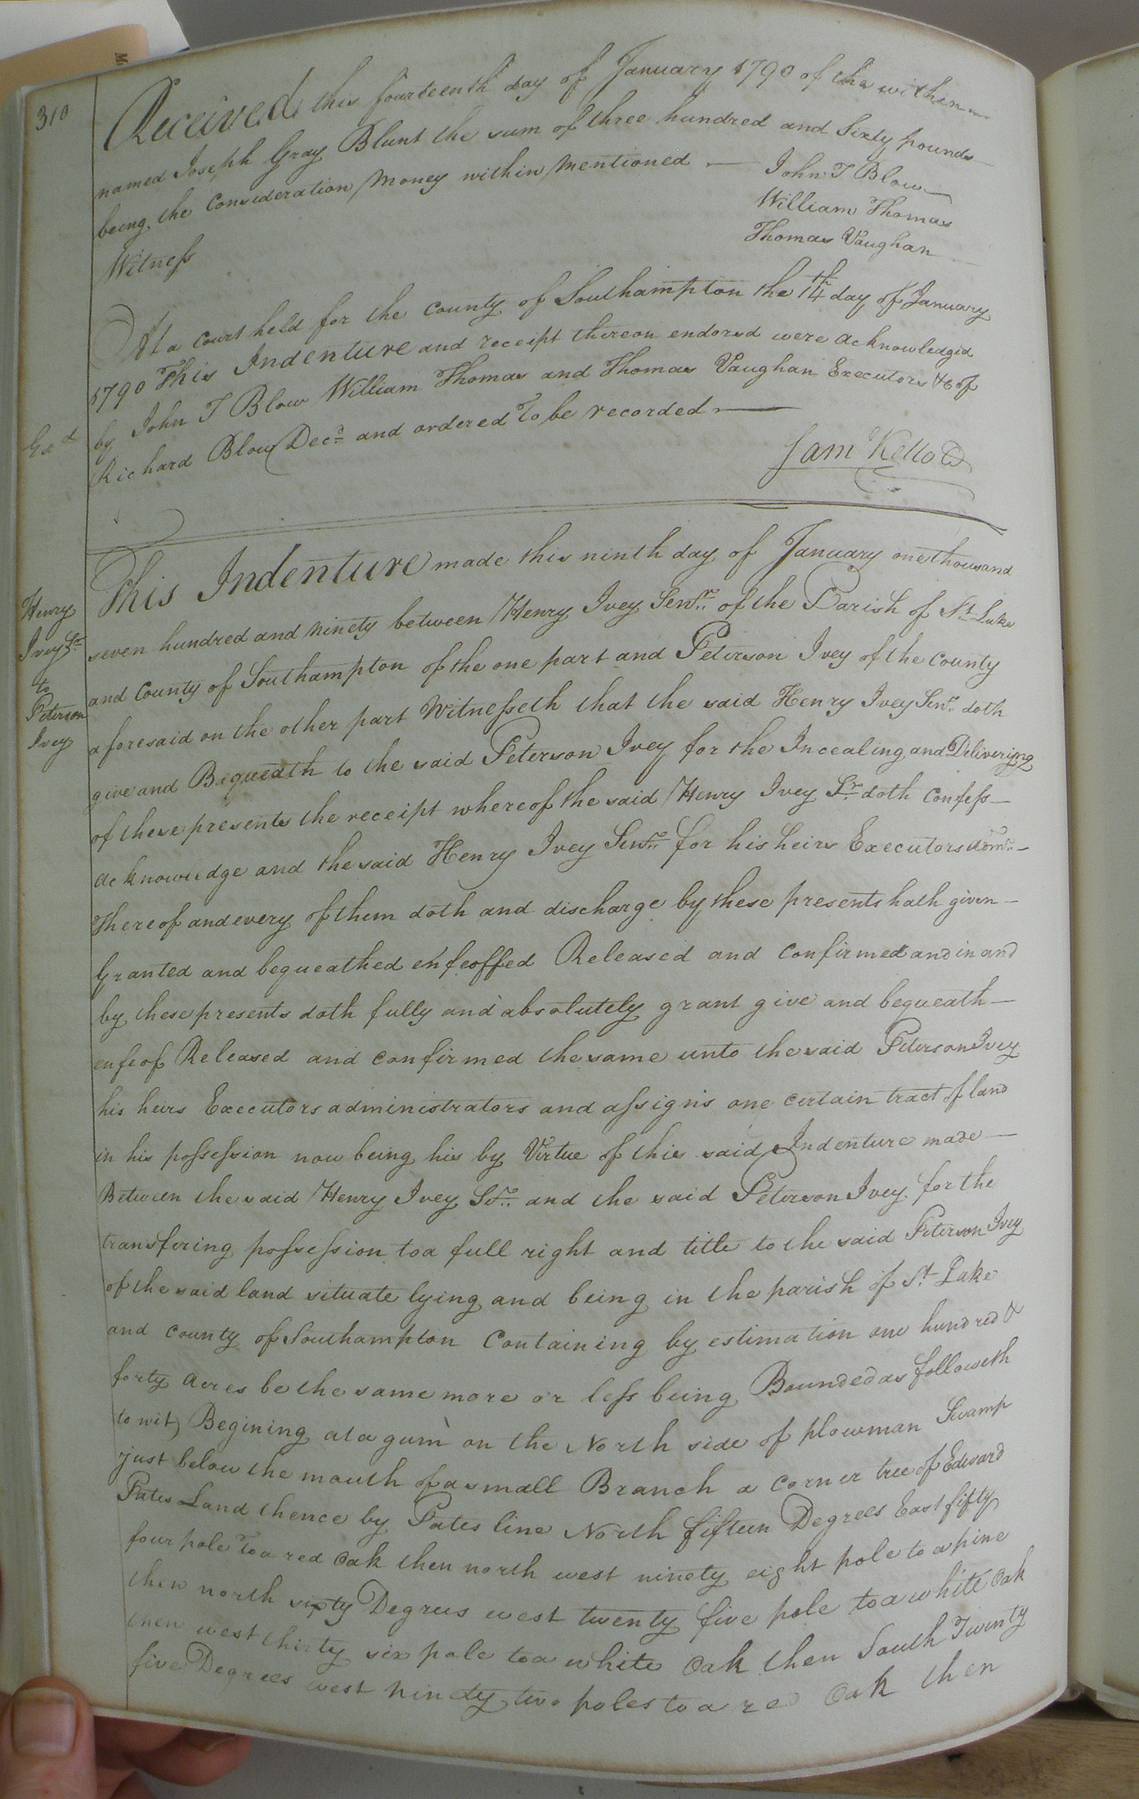 310
Received this fourteenth day of January 1790 of the within
named Joseph Gray Blunt the sum of three hundred and Sixty pounds
being the Consideration Money within Mentioned
John T Blow
William Thomas
Thomas Vaughan
Witness
At a Court held for the County of Southampton the 14th day of January
1790 This Indenture and receipt thereon endorsd were acknowledged
by John T Blow William Thomas and Thomas Vaughan Executors &c of
Richard Blow Decd and ordered To be recorded
Exd
Sam Kello
Henry Ivey Sr to Peterson Ivey
This Indenture made this ninth day of January one thousand
seven hundred and ninety between Henry Ivey Senr of the Parish of St Luke
and County of Southampton of the one part and Peterson Ivey of the County
aforesaid on the other part Witnesseth that the said Henry Ivey Senr doth
give and Bequeath to the said Peterson Ivey for the Incealing and Deliverigng
of these presents the receipt whereof the said Henry Ivey Sr doth Confess
acknowledge and the said Henry Ivey Senr for his heirs Executors
thereof and every of them doth and discharge by these presents hath given
Granted and bequeathed enfeoffed Released and Confirmed and in and
by these presents doth fully and absolutely grant give and bequeath
enfeof Released and confirmed the same unto the said Peterson Ivey
his heirs Executors administrators and assigns one certain tract of land
in his possession now being his by Virtue of this said Indenture made
Between the said Henry Ivey Senr and the said Peterson Ivey for the
transfiring possession to a full right and title to the said Peterson Ivey
of the said land situate lying and being in the parish of St Luke
and County of Southampton Containing by estimation one hundred &
forty acres be the same more or less being Bounded as followeth
to wit) Begining at a gum on the North side of plowman Swamp
just below the mouth of a small Branch a corner tree of Edward
Pates Land thence by Pates line North fifteen Degrees East fifty
four pole To a red oak then north west ninety eight pole to a pine
then north sixty Degrees west twenty five pole to a white oak
then west thirty six pole to a white oak then South Twenty
five Degrees west ninety two poles to a red oak then